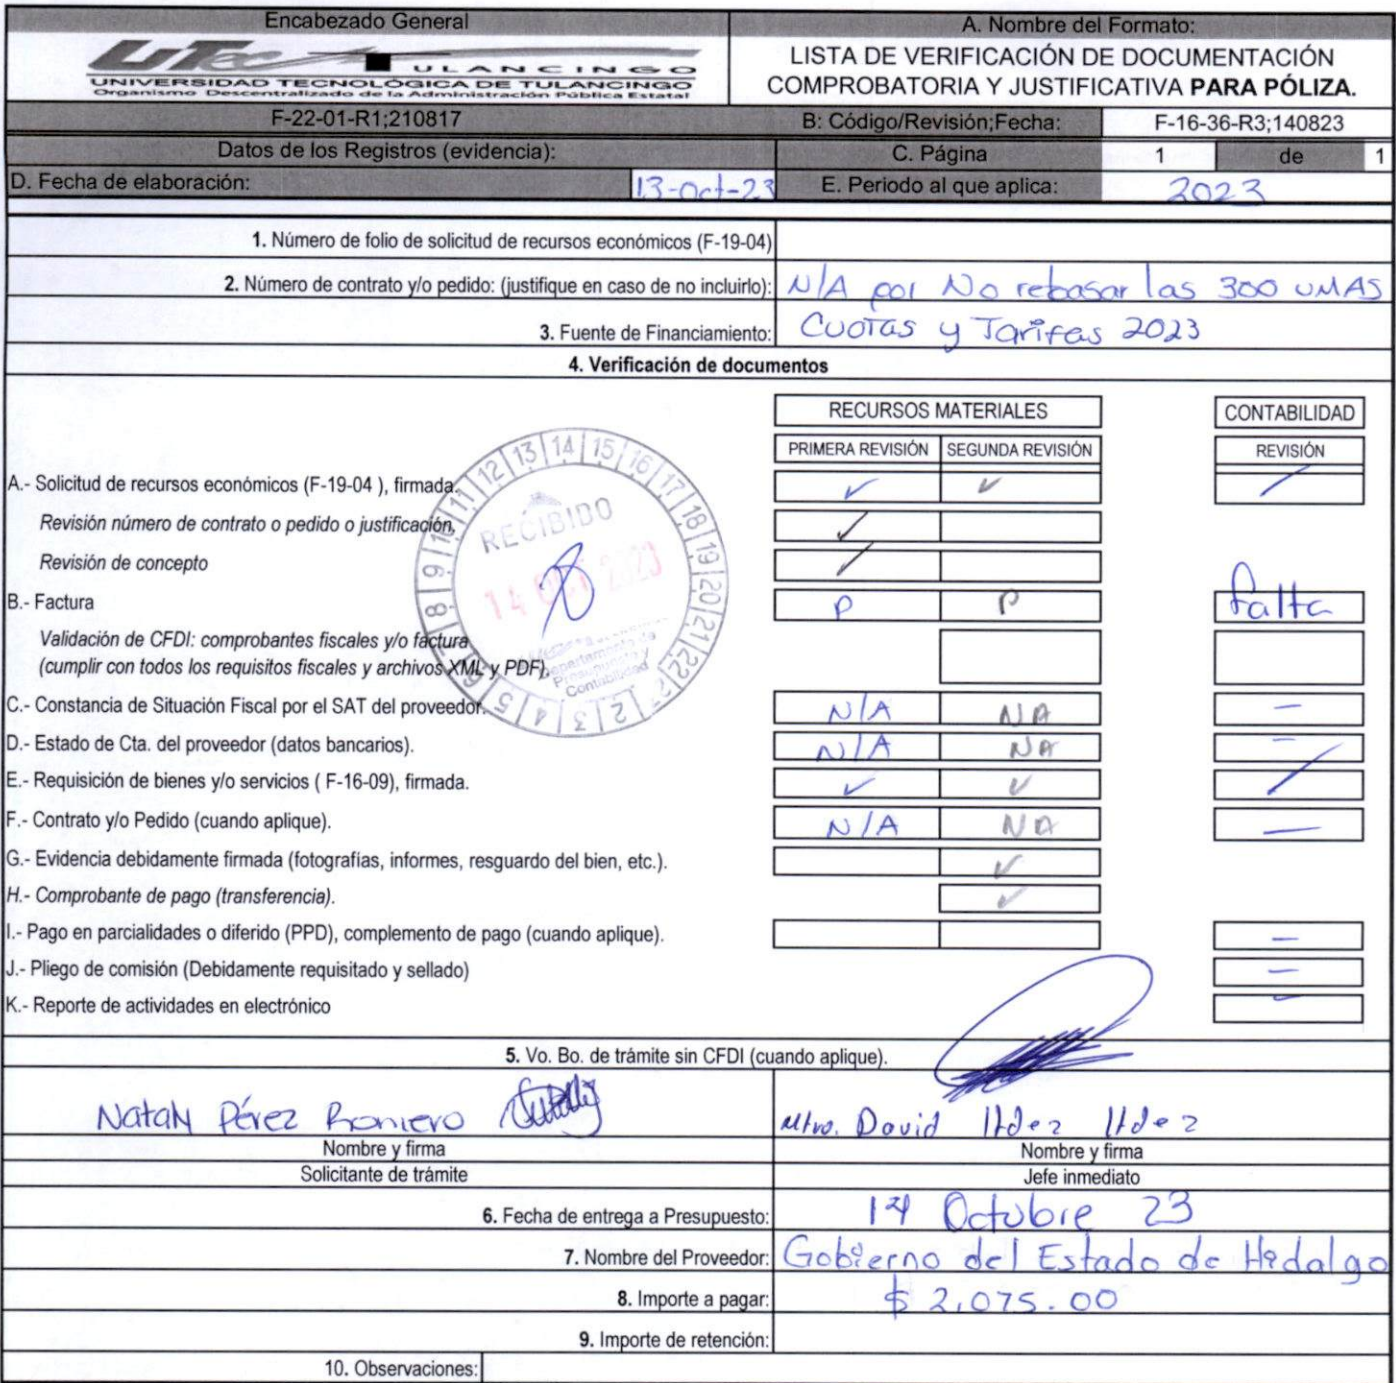 Encabezado General
A. Nombre del Formato:
UTec TULANCINGO
UNIVERSIDAD TECNOLÓGICA DE TULANCINGO
Organismo Descentralizado de la Administración Pública Estatal
LISTA DE VERIFICACIÓN DE DOCUMENTACIÓN
COMPROBATORIA Y JUSTIFICATIVA PARA PÓLIZA.
F-22-01-R1;210817
B: Código/Revisión;Fecha: F-16-36-R3;140823
Datos de los Registros (evidencia):
C. Página 1 de 1
D. Fecha de elaboración: 13-oct-23
E. Periodo al que aplica: 2023
1. Número de folio de solicitud de recursos económicos (F-19-04)
2. Número de contrato y/o pedido: (justifique en caso de no incluirlo): N/A por No rebasar las 300 UMAS
3. Fuente de Financiamiento: Cuotas y Tarifas 2023
4. Verificación de documentos
RECURSOS MATERIALES CONTABILIDAD
PRIMERA REVISIÓN SEGUNDA REVISIÓN REVISIÓN
A.- Solicitud de recursos económicos (F-19-04 ), firmada. ✓ ✓ /
Revisión número de contrato o pedido o justificación, ✓
Revisión de concepto ✓
B.- Factura P P falta
Validación de CFDI: comprobantes fiscales y/o factura
(cumplir con todos los requisitos fiscales y archivos XML y PDF).
C.- Constancia de Situación Fiscal por el SAT del proveedor. N/A NA —
D.- Estado de Cta. del proveedor (datos bancarios). N/A NA —
E.- Requisición de bienes y/o servicios ( F-16-09), firmada. ✓ ✓ /
F.- Contrato y/o Pedido (cuando aplique). N/A NA —
G.- Evidencia debidamente firmada (fotografías, informes, resguardo del bien, etc.). ✓
H.- Comprobante de pago (transferencia). ✓
I.- Pago en parcialidades o diferido (PPD), complemento de pago (cuando aplique). —
J.- Pliego de comisión (Debidamente requisitado y sellado) —
K.- Reporte de actividades en electrónico —
1 2 3 4 5 6 7 8 9 10 11 12 13 14 15 16 17 18 19 20 21 22
RECIBIDO
14 OCT 2023
Departamento de
Presupuesto y
Contabilidad
5. Vo. Bo. de trámite sin CFDI (cuando aplique).
Nataly Pérez Romero
Mtro. David Hdez Hdez
Nombre y firma
Nombre y firma
Solicitante de trámite
Jefe inmediato
6. Fecha de entrega a Presupuesto: 14 Octubre 23
7. Nombre del Proveedor: Gobierno del Estado de Hidalgo
8. Importe a pagar: $ 2,075.00
9. Importe de retención:
10. Observaciones: